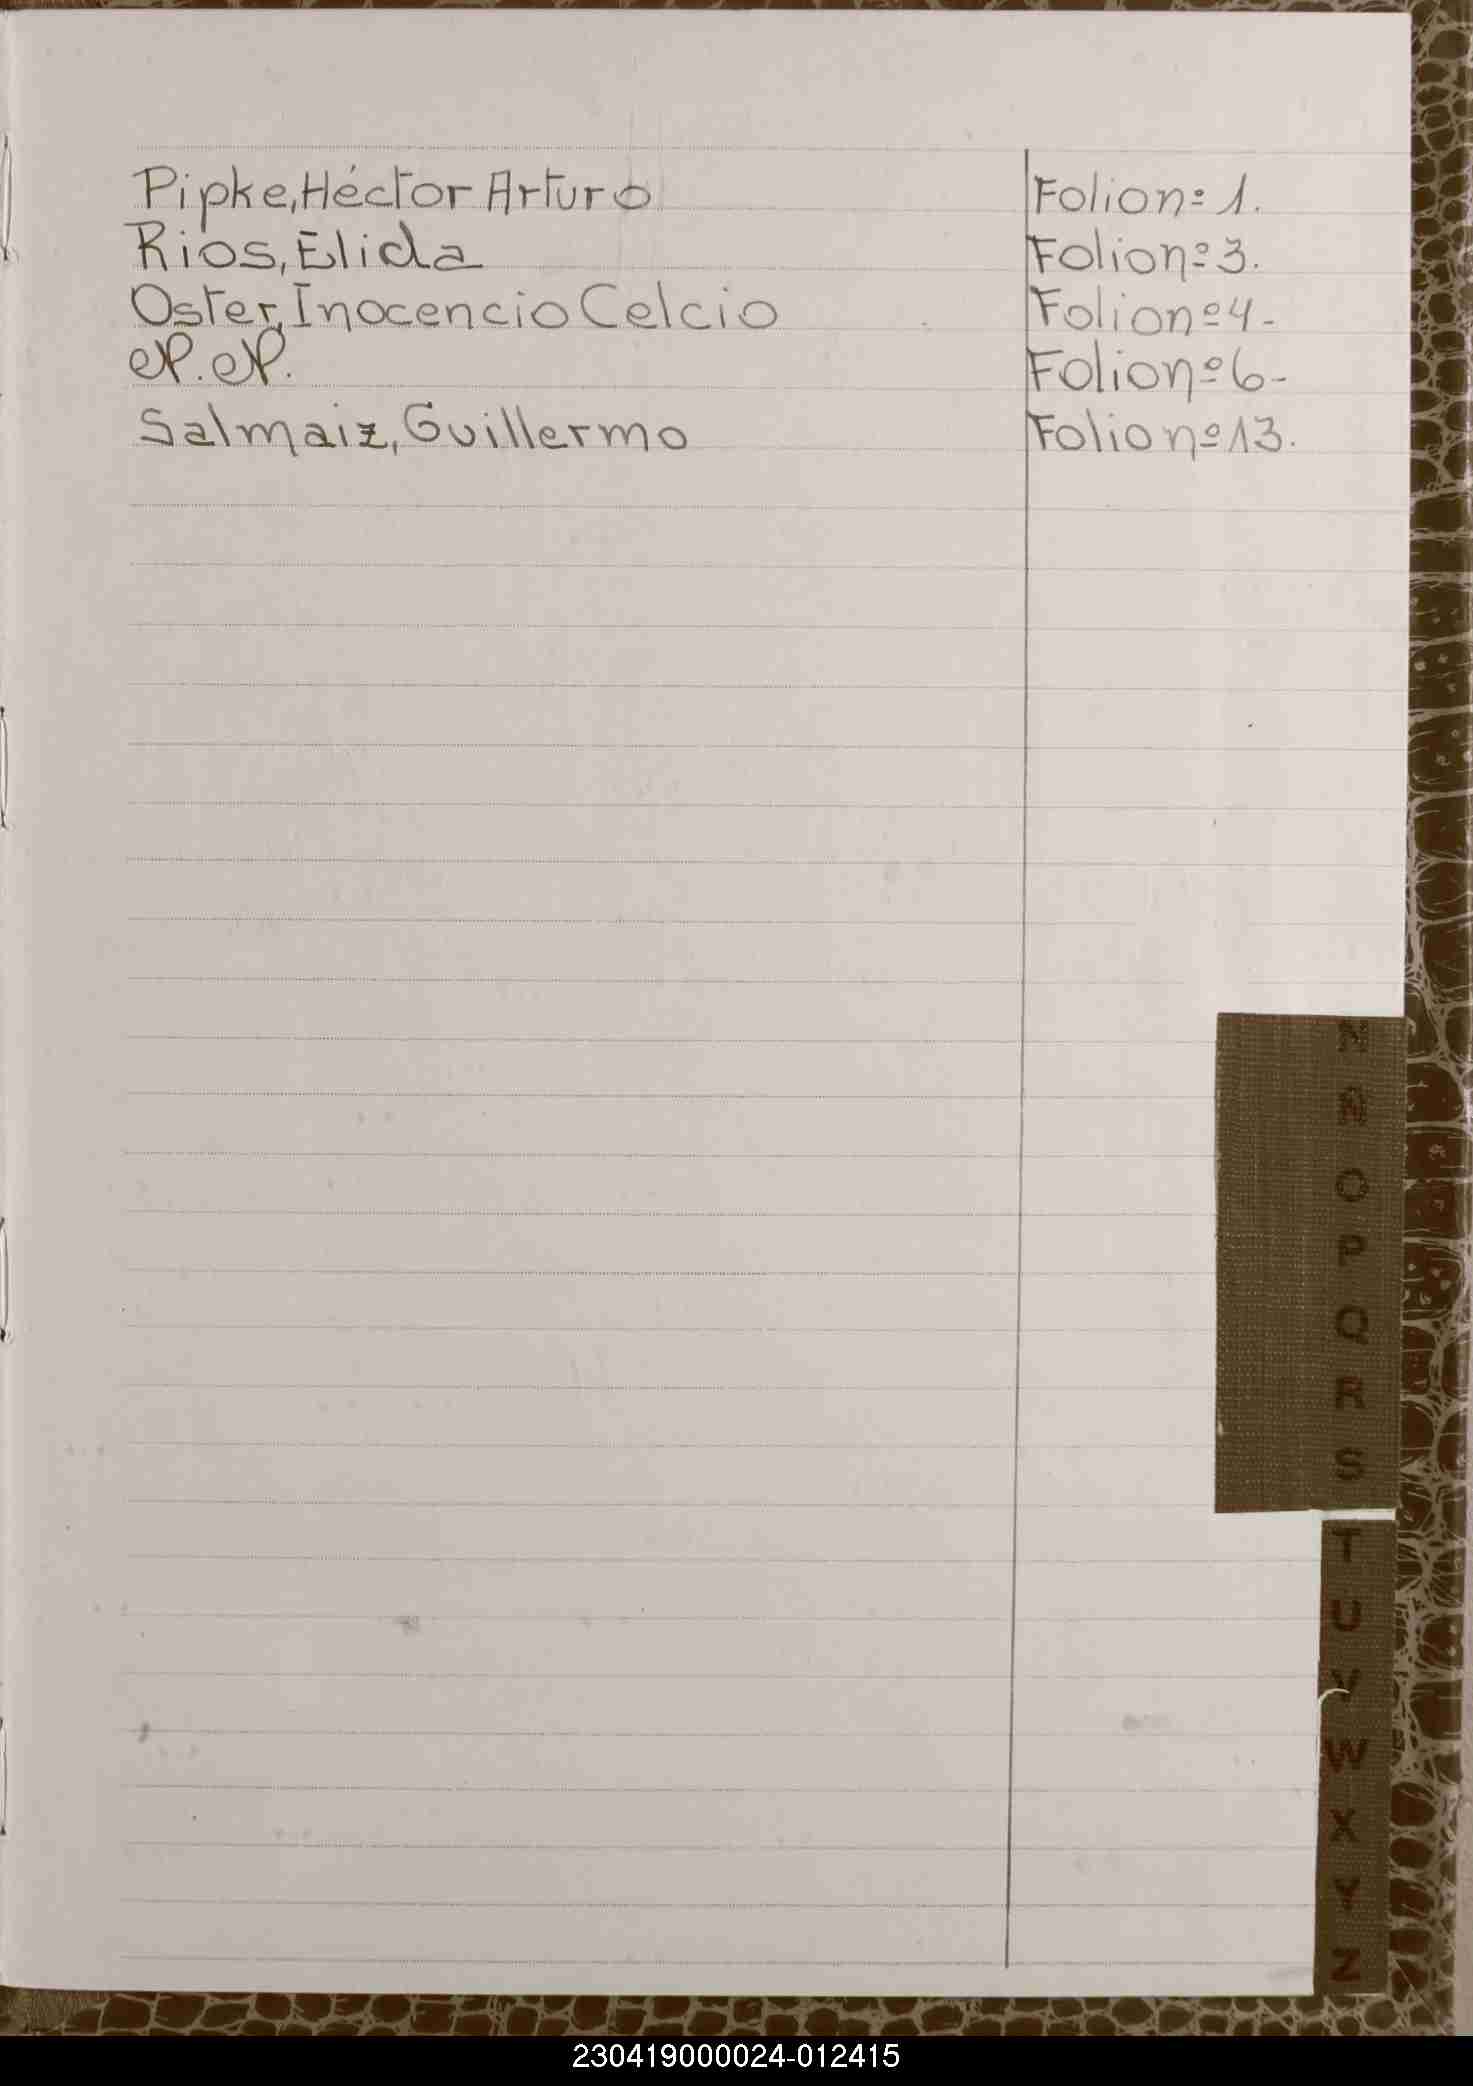 Pipke, Héctor Arturo Folio nº 1.
Rios, Elida Folio nº 3.
Oster, Inocencio Celcio Folio nº 4-
N. N. Folio nº 6-
Salmaiz, Guillermo Folio nº 13.
M
N
O
P
Q
R
S
T
U
V
W
X
Y
Z
230419000024-012415